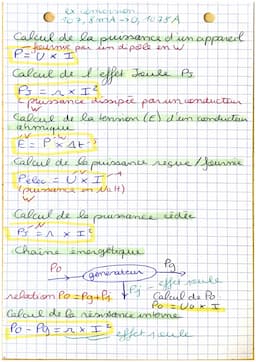 ex conversion
107,8mA → 0,1078A
Calcul de la puissance d'un appareil
fournie par un dipôle en W
P = U × I
Calcul de l'effet Joule Pj
Pj = r × I²
puissance dissipée par un conducteur
Calcul de la tension (E) d'un conducteur
ohmique
E = P × Δt
Calcul de la puissance reçue / fournie
Pelec = U × I
(puissance en Watt)
Calcul de la puissance cédée
Pj = r × I²
Chaine énergétique
Po générateur Pg
Pj effet joule
relation Po = Pg + Pj
Calcul de Po
Po = Uo × I
Calcul de la résistance interne
Po - Pg = r × I² effet joule